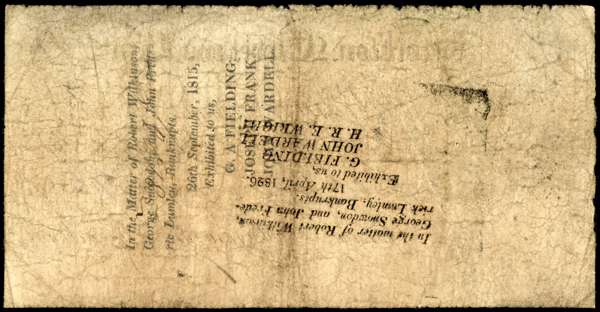 In the Matter of Robert Wilkinson,
George Snowdon, and John Frede-
ric Lumley, Bankrupts.
26th September, 1815,
Exhibited to us,
G. A FIELDING.
JOSEPH FRANK,
JOHN WARDELL
In the matter of Robert Wilkinson,
George Snowdon, and John Frede-
rick Lumley, Bankrupts.
17th April, 1826,
Exhibited to us,
G. FIELDING
JOHN WARDELL
H. R. E. WRIGHT